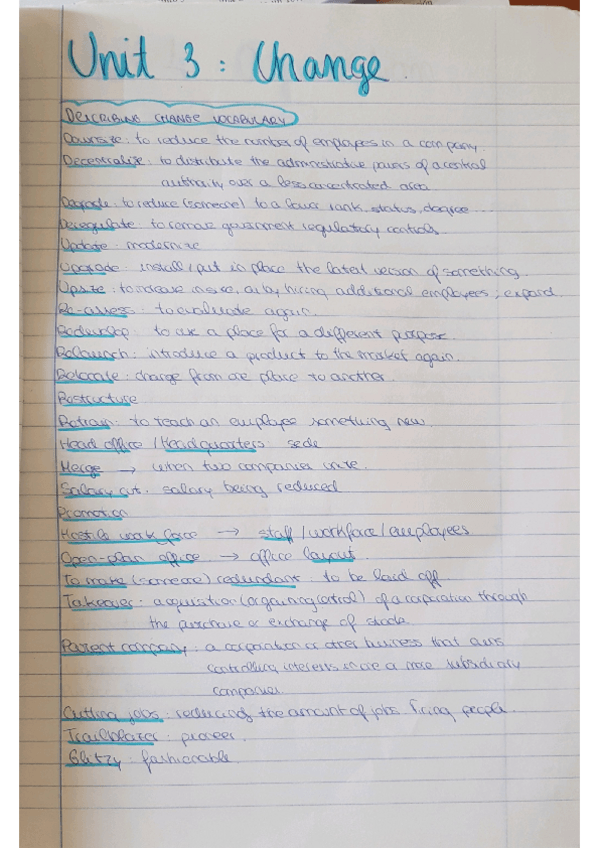 Unit 3 : Change
DESCRIBING CHANGE VOCABULARY
Downsize : to reduce the number of employees in a company.
Decentralize : to distribute the administrative powers of a central
authority over a less concentrated area.
Degrade : to reduce (someone) to a lower rank, status, degree ...
Deregulate : to remove government regulatory controls.
Update : modernize
Upgrade : install / put in place the latest version of something.
Upsize : to increase in size, as by hiring additional employees ; expand.
Re-assess : to evaluate again.
Redevelop : to use a place for a different purpose.
Relaunch : introduce a product to the market again.
Relocate : change from one place to another.
Restructure
Retrain : to teach an employee something new.
Head office / Headquarters : sede
Merge → when two companies unite.
Salary cut : salary being reduced
Promotion
Hostile work force → staff / workforce / employees
Open-plan office → office layout.
To make (someone) redundant : to be laid off.
Takeover : acquisition (or gaining control) of a corporation through
the purchase or exchange of stock.
Parent company : a corporation or other business that owns
controlling interests in one a more subsidiary
companies.
Cutting jobs : reducing the amount of jobs. Firing people.
Trailblazer : pioneer.
Glitzy : fashionable.